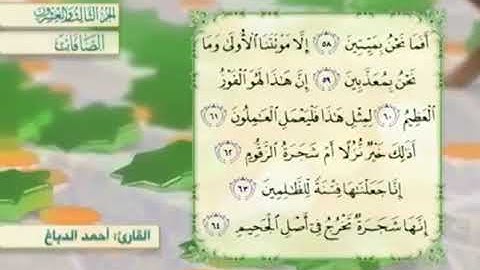 الجزء الثالث والعشرون
الصَّافات
أَفَمَا نَحْنُ بِمَيِّتِينَ ﴿٥٨﴾ إِلَّا مَوْتَتَنَا ٱلْأُولَىٰ وَمَا
نَحْنُ بِمُعَذَّبِينَ ﴿٥٩﴾ إِنَّ هَٰذَا لَهُوَ ٱلْفَوْزُ
ٱلْعَظِيمُ ﴿٦٠﴾ لِمِثْلِ هَٰذَا فَلْيَعْمَلِ ٱلْعَٰمِلُونَ ﴿٦١﴾
أَذَٰلِكَ خَيْرٌ نُّزُلًا أَمْ شَجَرَةُ ٱلزَّقُّومِ ﴿٦٢﴾
إِنَّا جَعَلْنَٰهَا فِتْنَةً لِّلظَّٰلِمِينَ ﴿٦٣﴾
إِنَّهَا شَجَرَةٌ تَخْرُجُ فِىٓ أَصْلِ ٱلْجَحِيمِ ﴿٦٤﴾
القارئ: أحمد الدباغ